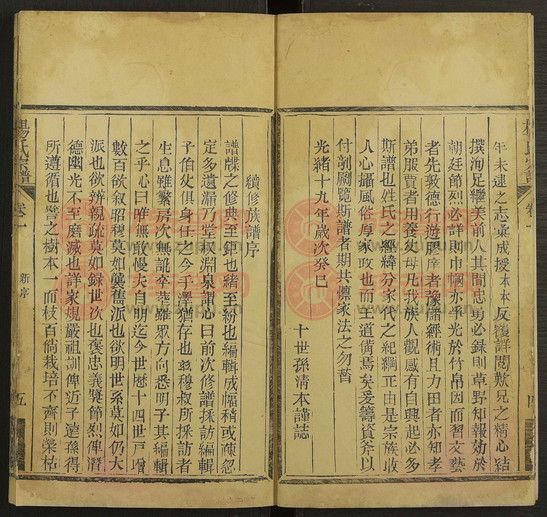 年未逮之志彙成授本本反覆詳閱歎兄之精心結
撰洵足繼美前人其間忠勇必錄則草野知報効於
朝廷節烈必詳則巾幗亦爭光於竹帛因而習文藝
者先敦德行遊膠庠者豫儲經術且力田者亦知孝
弟服賈者用養從母凡我族人觀感有自興起必多
斯譜也姓氏之經緯分家代之紀綱正由是宗族收
人心攝風俗厚家政也而王道備焉矣爰籌資斧以
付剞劂覽斯譜者期共懍家法之勿替
光緒十九年歲次癸巳
十世孫清本謹誌
續修族譜序
譜牒之修典至鉅也緒至紛也編輯成幅稍或疎忽
定多遺漏乃堂叔淵泉謂心曰前次修譜採訪編輯
子伯處俱身任之今手澤猶存也
生息雖繁房次無訛卒葬雖眾方向悉明子其編輯
之乎心曰唯無敢慢夫自明迄今世曆十四世戸增
數百欲叙昭穆莫如龔舊派也欲明世系莫如仍大
派也欲辨親疏莫如録世次也褒忠義獎節烈俾潛
德幽光不至磨滅也詳家規嚴祖訓俾近子遠孫得
所遵循也譬之樹本一而枝百倘栽培不齊則榮枯
楊氏宗譜
卷一
新序
五